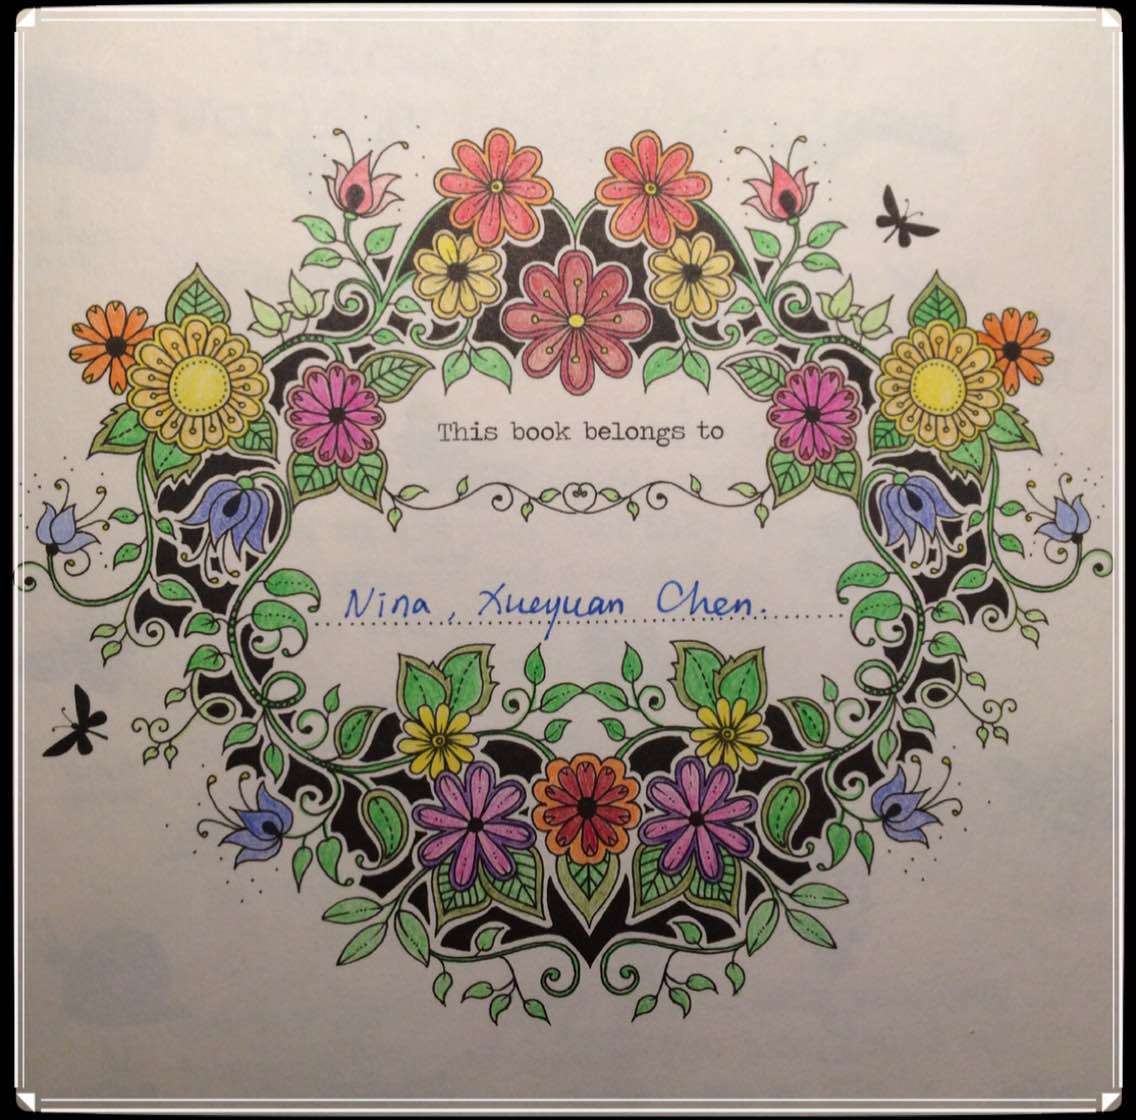 This book belongs to
Nina, Xueyuan Chen.